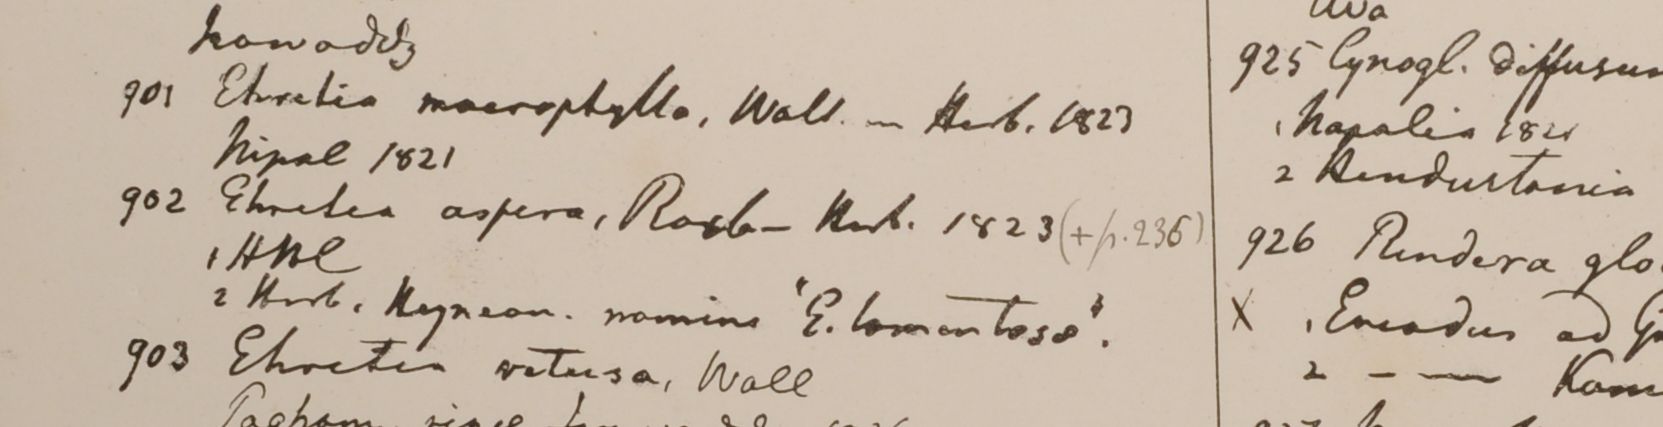 Irawaddy
901 Ehretia macrophylla, Wall. — Herb. 1823
Nipal 1821
902 Ehretia aspera, Roxb — Herb. 1823 (+ p. 236)
1 HBC
2 Herb. Heynean. nomine "E. tomentosa".
903 Ehretia retusa, Wall
Ava
925 Cynogl. diffusum
1 Napalia 1821
2 Hendustania
926 Rindera glo
X 1 Emodus ad
2 - — Kam